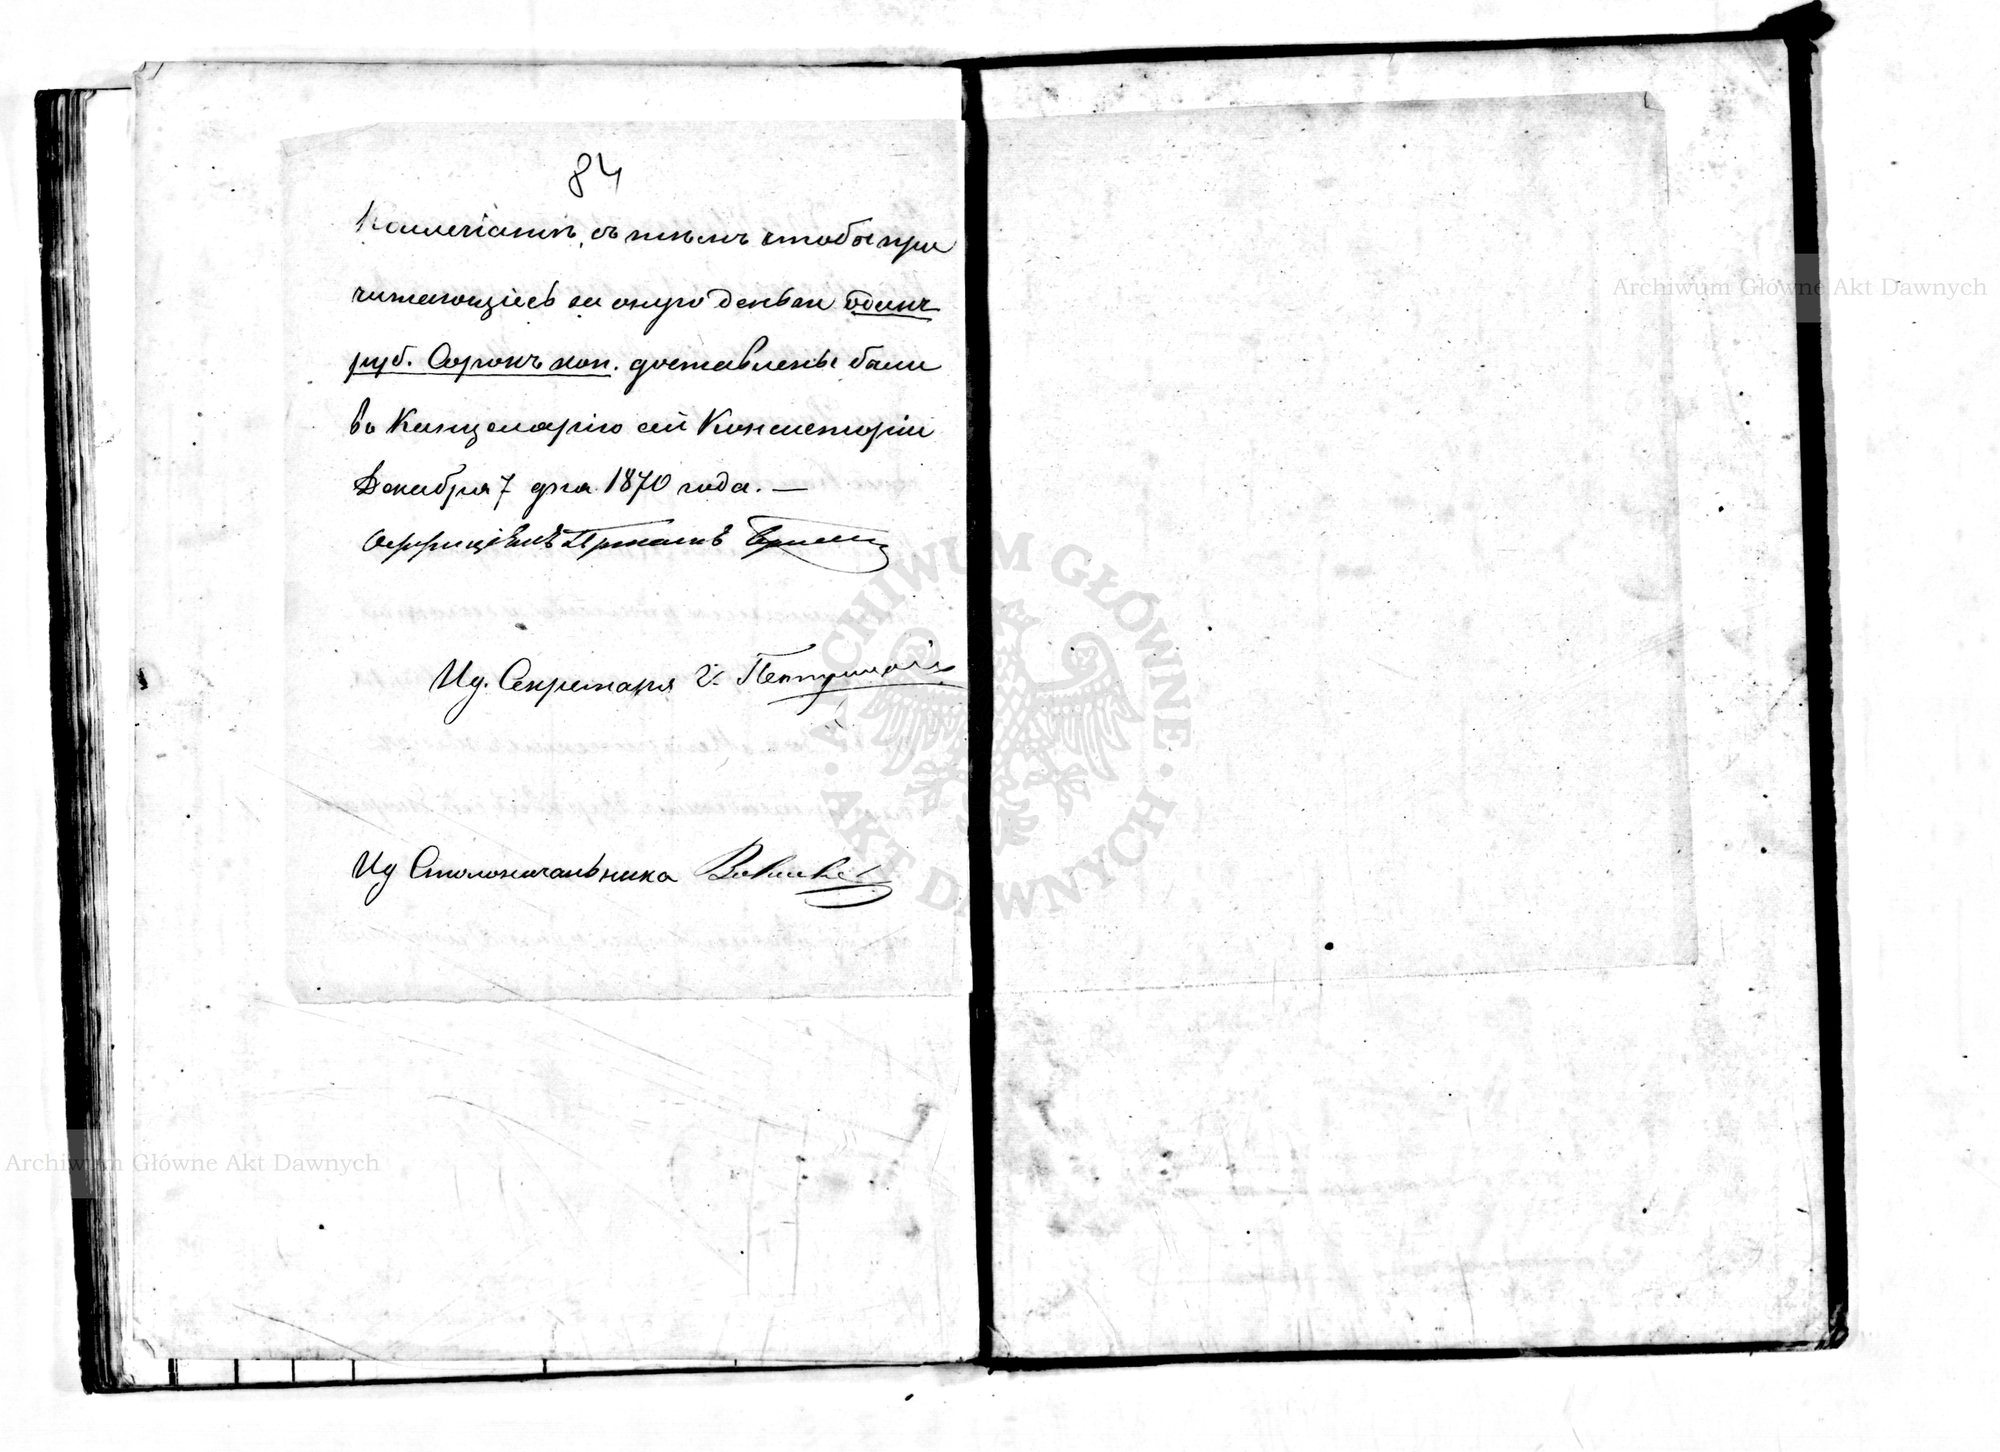 84
съ тѣмъ чтобы при
читающіесь за оную деньги одинъ
руб. Сорокъ коп. доставлены были
въ Канцелярію сей Консисторіи
Декабря 7 дня 1870 года. —
Оффиціалъ Прелатъ
Ид. Секретаря
Ид Столоначальника
Archiwum Główne Akt Dawnych
Archiwum Główne Akt Dawnych
ARCHIWUM GŁÓWNE AKT DAWNYCH